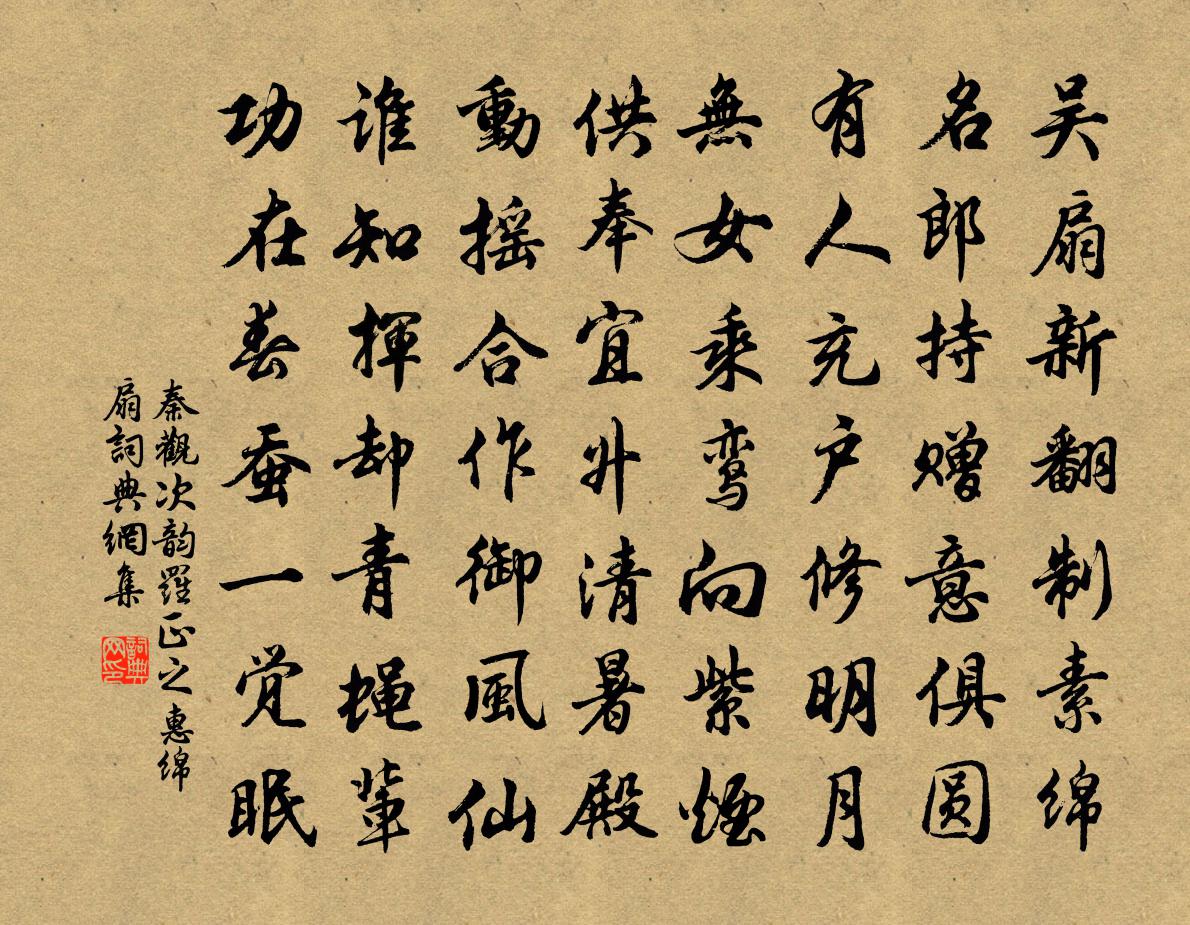 吴扇新翻制素绵
名郎持赠意俱圆
有人充户修明月
無女乘鸾向紫煙
供奉宜升清暑殿
動摇合作御風仙
谁知揮却青蝇輩
功在春蚕一觉眠
秦觀次韵羅正之惠綿
扇詞典網集
詞典网印